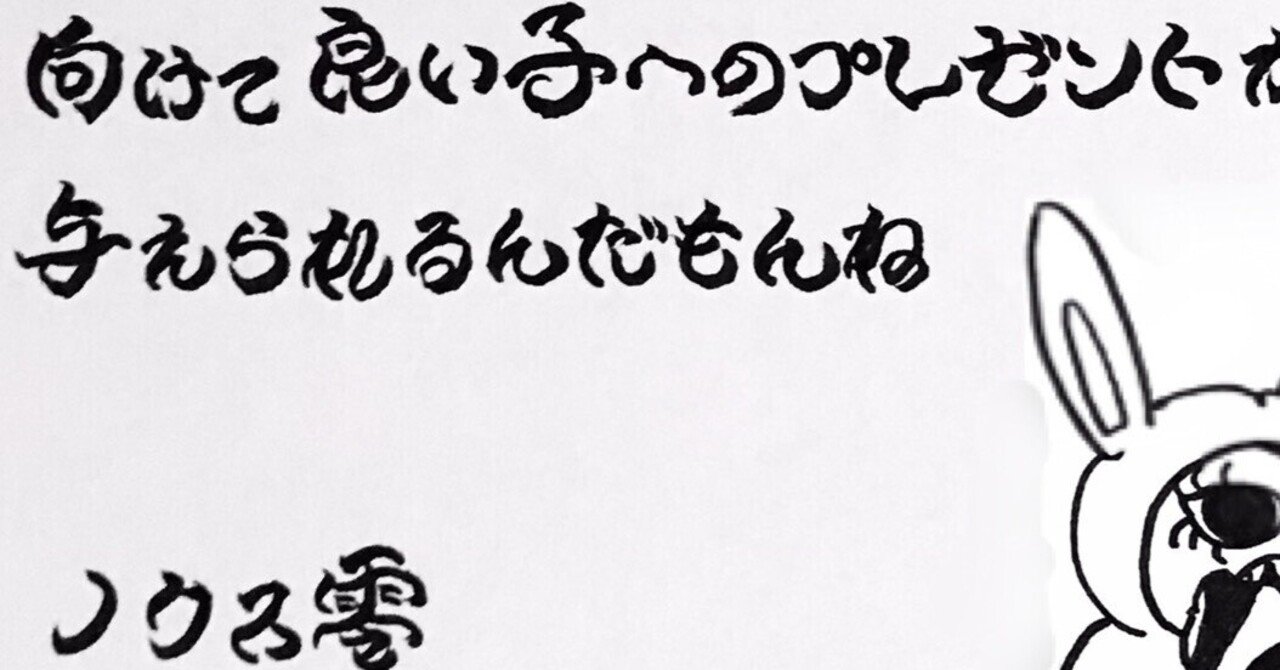 向けて良い子へのプレゼントが
与えられるんだもんね
ノウス零